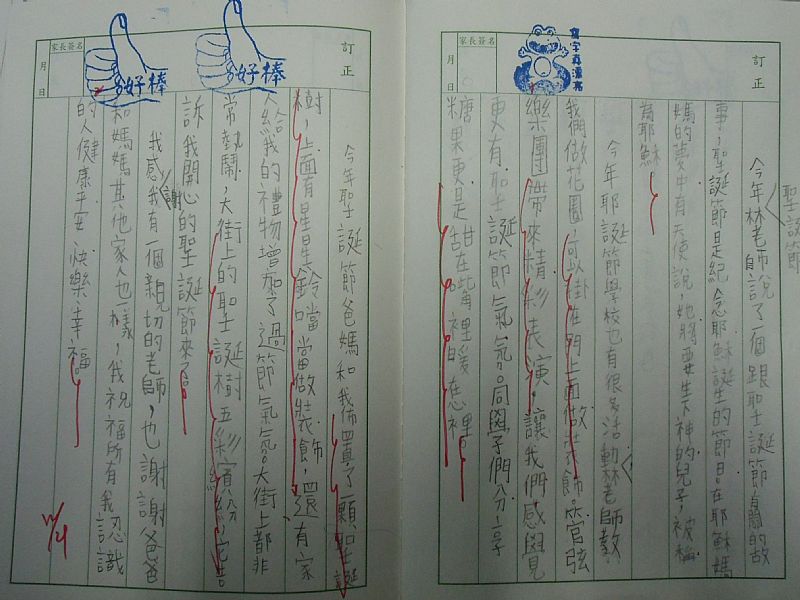 聖誕節
今年林老師說了一個跟聖誕節有關的故
事，聖誕節是紀念耶穌誕生的節日。在耶穌媽
媽的夢中有天使說，她將要生下神的兒子，被稱
為耶穌。
今年耶誕節學校也有很多活動林老師教
我們做花圈，可以掛在門上面做裝飾。管弦
樂團帶來精彩表演，讓我們感覺
更有聖誕節氣氛。同學們分享
糖果更是甜在嘴裡暖在心裡。
訂正
家長簽名
月 日
寫字真漂亮
今年聖誕節爸媽和我佈置了一顆聖誕
樹，上面有星星鈴噹當做裝飾，還有家
人給我的禮物增加了過節氣氛。大街上都非
常熱鬧，大街上的聖誕樹五彩繽紛，它告
訴我開心的聖誕節來了。
我感謝我有一個親切的老師，也謝謝爸爸
和媽媽其他家人也一樣，我祝福所有我認識
的人健康平安快樂幸福。
訂正
家長簽名
月 日
好棒
好棒